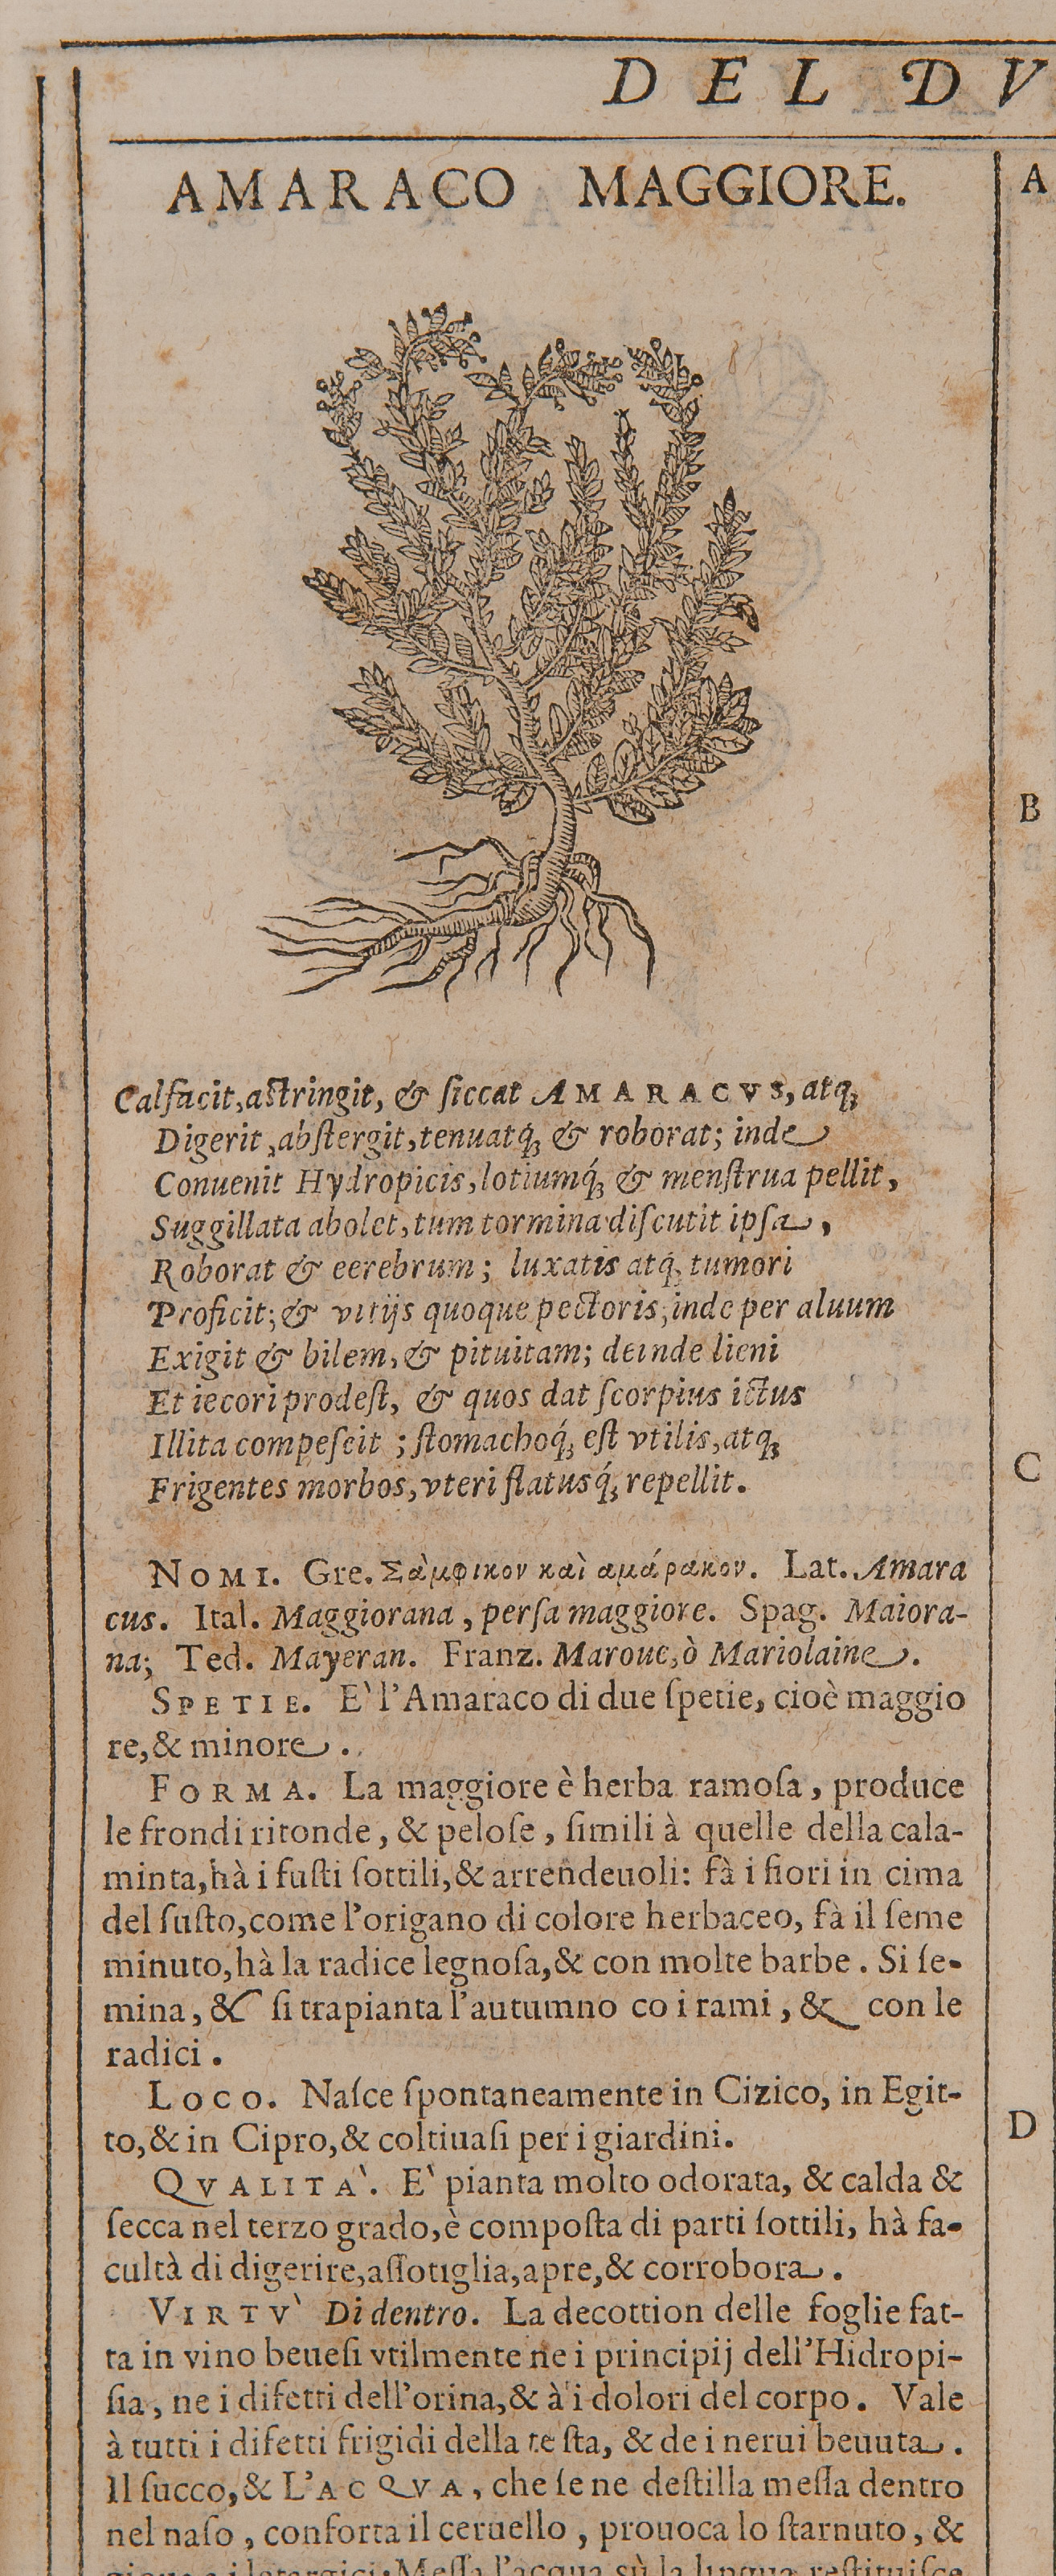 DEL DV
AMARACO MAGGIORE.
A
B
Calfacit, aſtringit, & ſiccat AMARACVS, atq;
Digerit, abſtergit, tenuatq́; & roborat; inde
Conuenit Hydropicis, lotiumq́; & menſtrua pellit,
Suggillata abolet, tum tormina diſcutit ipſa,
Roborat & eerebrum; luxatis atq́; tumori
Proficit; & vitijs quoque pectoris, inde per aluum
Exigit & bilem, & pituitam; deinde lieni
Et iecori prodeſt, & quos dat ſcorpius ictus
Illita compeſeit; ſtomachoq́; eſt vtilis, atq;
C
Frigentes morbos, vteri flatusq́; repellit.
NOMI. Gre. Σὰμφικον καὶ αμάρακον. Lat. Amara
cus. Ital. Maggiorana, perſa maggiore. Spag. Maiora-
na; Ted. Mayeran. Franz. Maroue, ò Mariolaine.
SPETIE. E' l'Amaraco di due ſpetie, cioè maggio
re, & minore.
FORMA. La maggiore è herba ramoſa, produce
le frondi ritonde, & peloſe, ſimili à quelle della cala-
minta, hà i fuſti ſottili, & arrendeuoli: fà i fiori in cima
del fuſto, come l'origano di colore herbaceo, fà il ſeme
minuto, hà la radice legnoſa, & con molte barbe. Si ſe-
mina, & ſi trapianta l'autumno co i rami, & con le
radici.
LOCO. Naſce ſpontaneamente in Cizico, in Egit-
D
to, & in Cipro, & coltiuaſi per i giardini.
QVALITA'. E' pianta molto odorata, & calda &
ſecca nel terzo grado, è compoſta di parti ſottili, hà fa-
cultà di digerire, aſſotiglia, apre, & corrobora.
VIRTV' Di dentro. La decottion delle foglie fat-
ta in vino beueſi vtilmente ne i principij dell'Hidropi-
ſia, ne i difetti dell'orina, & à i dolori del corpo. Vale
à tutti i difetti frigidi della teſta, & de i nerui beuuta.
Il ſucco, & L'ACQVA, che ſe ne deſtilla meſſa dentro
nel naſo, conforta il ceruello, prouoca lo ſtarnuto, &
gioua a i letargici. Meſſa l'acqua sù la lingua reſtituiſce